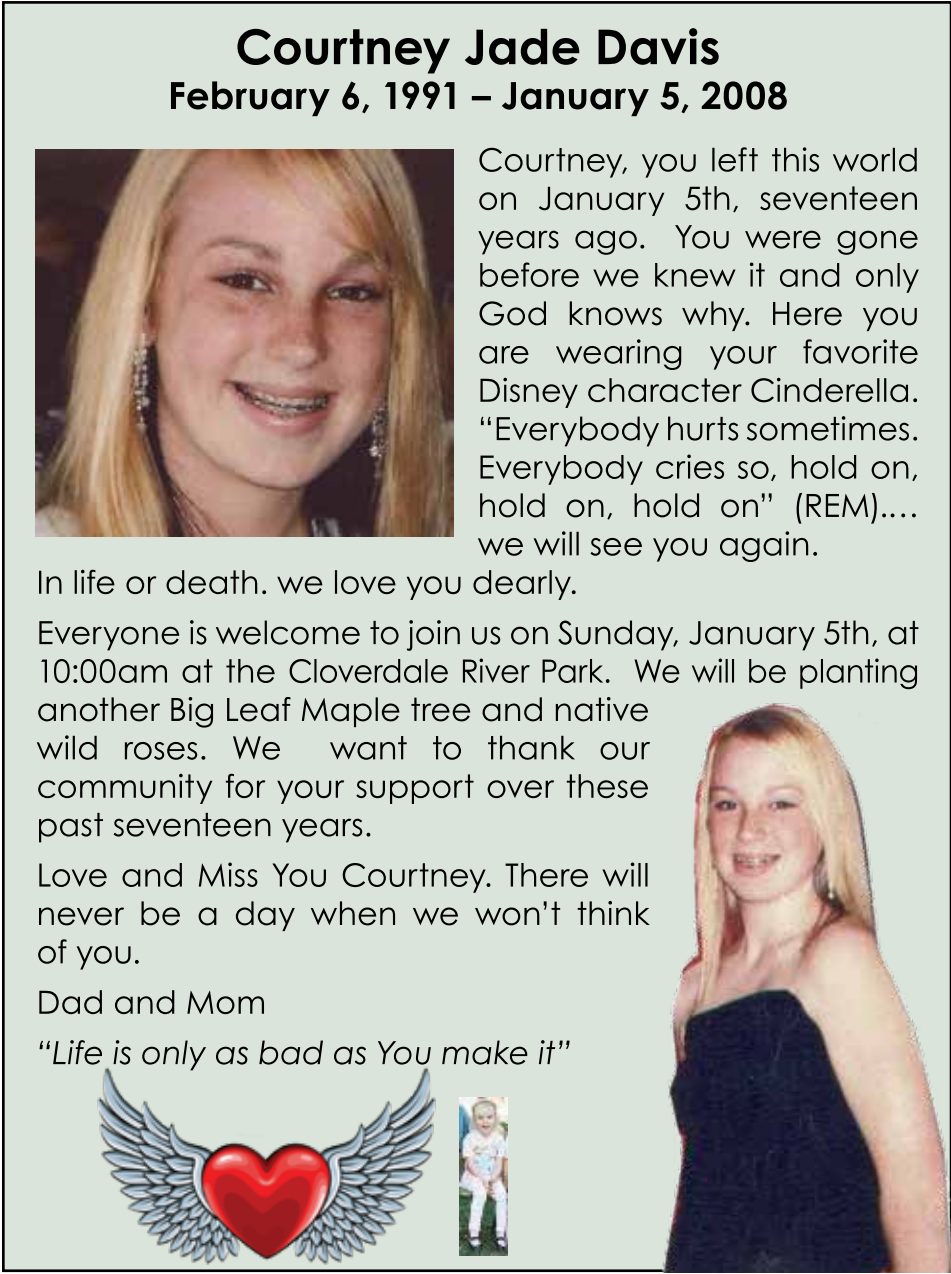 Courtney Jade Davis
February 6, 1991 – January 5, 2008
Courtney, you left this world
on January 5th, seventeen
years ago. You were gone
before we knew it and only
God knows why. Here you
are wearing your favorite
Disney character Cinderella.
“Everybody hurts sometimes.
Everybody cries so, hold on,
hold on, hold on” (REM).…
we will see you again.
In life or death. we love you dearly.
Everyone is welcome to join us on Sunday, January 5th, at
10:00am at the Cloverdale River Park. We will be planting
another Big Leaf Maple tree and native
wild roses. We want to thank our
community for your support over these
past seventeen years.
Love and Miss You Courtney. There will
never be a day when we won’t think
of you.
Dad and Mom
“Life is only as bad as You make it”